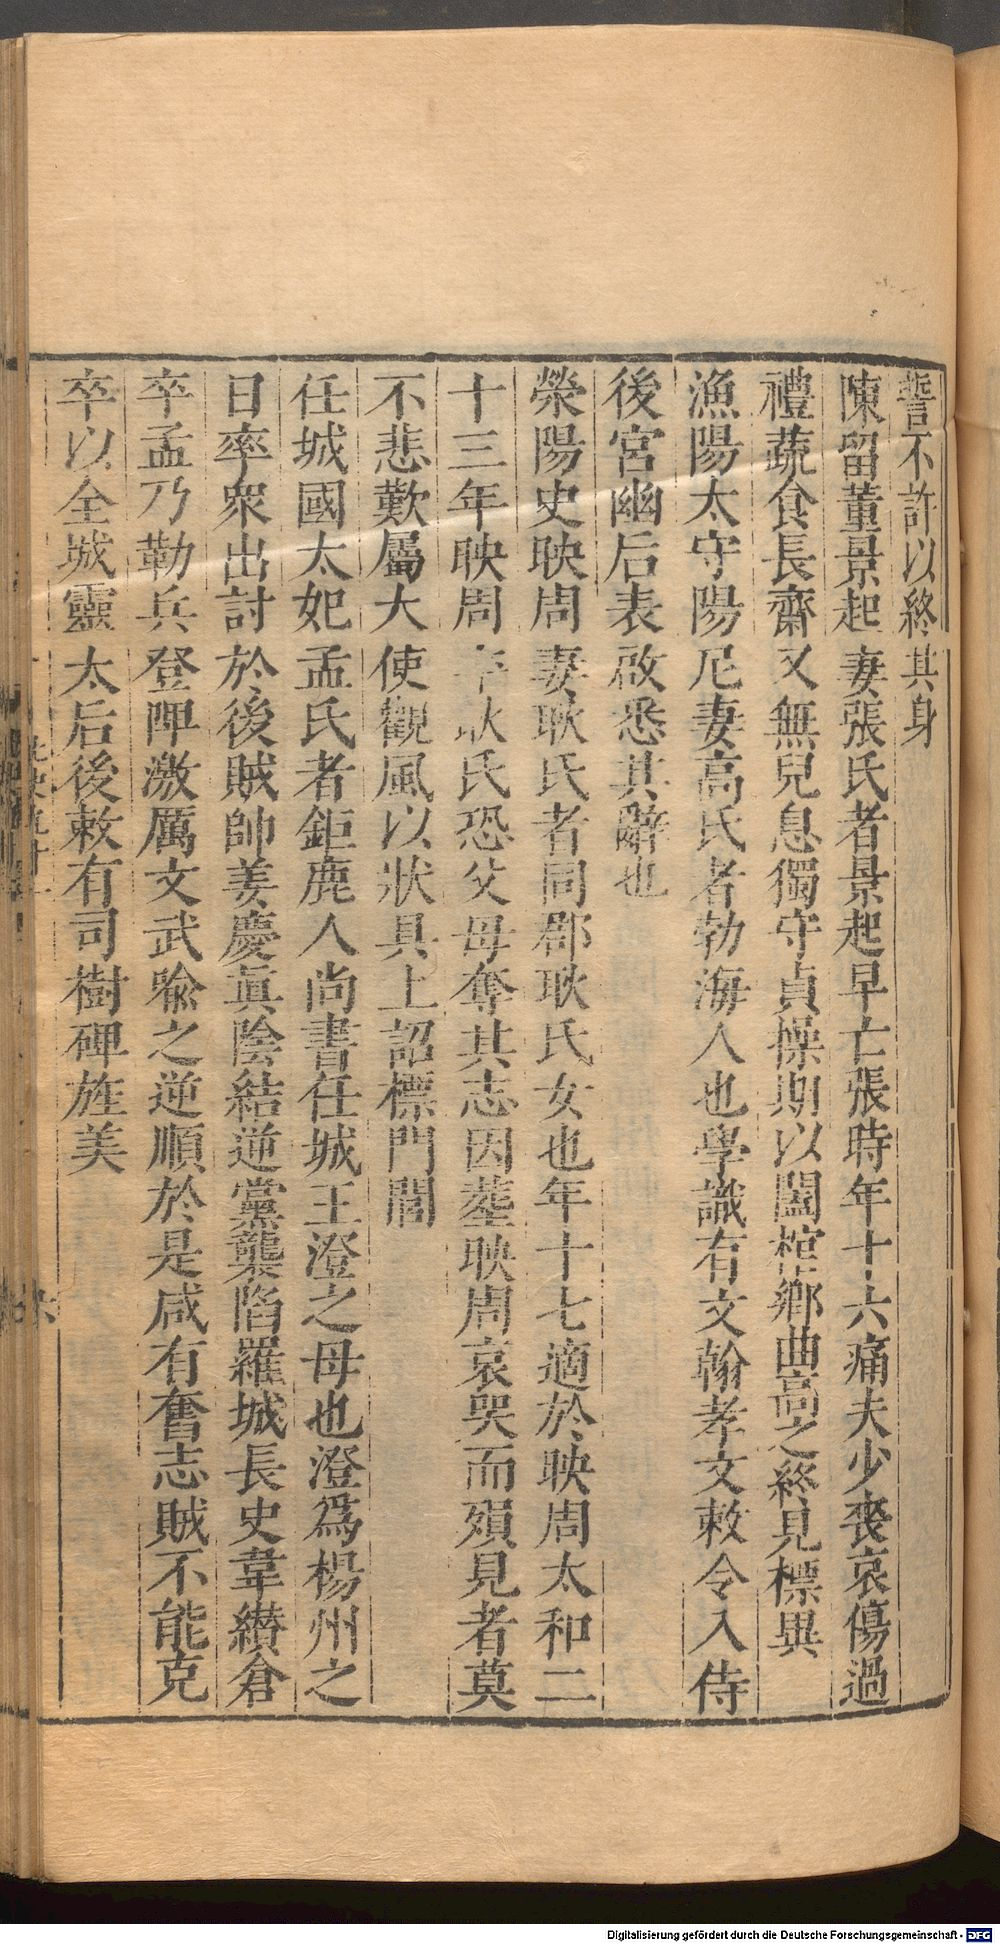 誓不許以終其身
陳留董景起妻張氏者景起早亡張時年十六痛夫少喪哀傷過
禮蔬食長齋又無兒息獨守貞操期以闔棺鄉曲高之終見標異
漁陽太守陽尼妻高氏者勃海人也學識有文翰孝文敕令入侍
後宮幽后表啟悉其辭也
滎陽史映周妻耿氏者同郡耿氏女也年十七適於映周太和二
十三年映周卒耿氏恐父母奪其志因塟映周哀哭而殞見者莫
不悲歎屬大使觀風以狀具上詔標門閭
任城國太妃孟氏者鉅鹿人尚書任城王澄之母也澄爲楊州之
日率衆出討於後賊帥姜慶眞陰結逆黨襲陷羅城長史韋纉倉
卒孟乃勒兵登陴激厲文武喩之逆順於是咸有奮志賊不能克
卒以全城靈太后後敕有司樹碑旌美
Digitalisierung gefördert durch die Deutsche Forschungsgemeinschaft - DFG